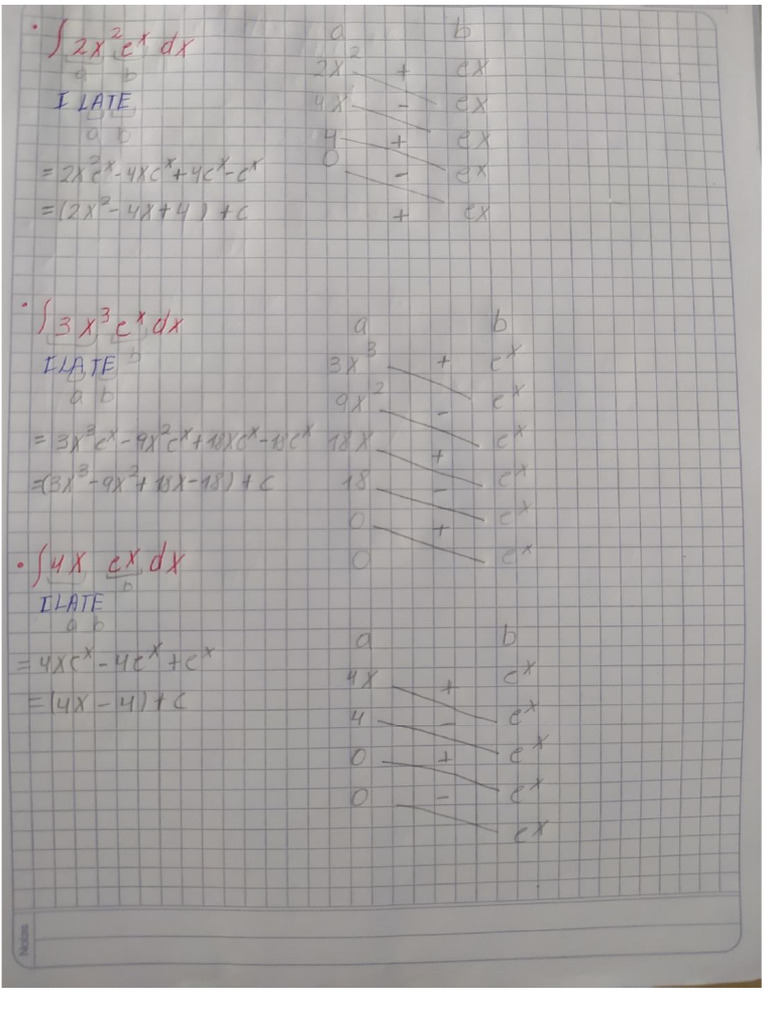 • ∫ 2x² eˣ dx
a b
I LATE
a b
= 2x²eˣ - 4xeˣ + 4eˣ - eˣ
= (2x² - 4x + 4) + c
a b
2x² + ex
4x - ex
4 + ex
0 - ex
+ ex
• ∫ 3x³ eˣ dx
b
ILATE
a b
= 3x³eˣ - 9x²eˣ + 18xeˣ - 18eˣ
= (3x³ - 9x² + 18x - 18) + c
a b
3x³ + eˣ
9x² - eˣ
18x + eˣ
18 - eˣ
0 + eˣ
0 eˣ
• ∫ 4x ex dx
b
ILATE
a b
= 4xeˣ - 4eˣ + eˣ
= (4x - 4) + c
a b
4x + eˣ
4 - eˣ
0 + eˣ
0 - eˣ
ex
Notas